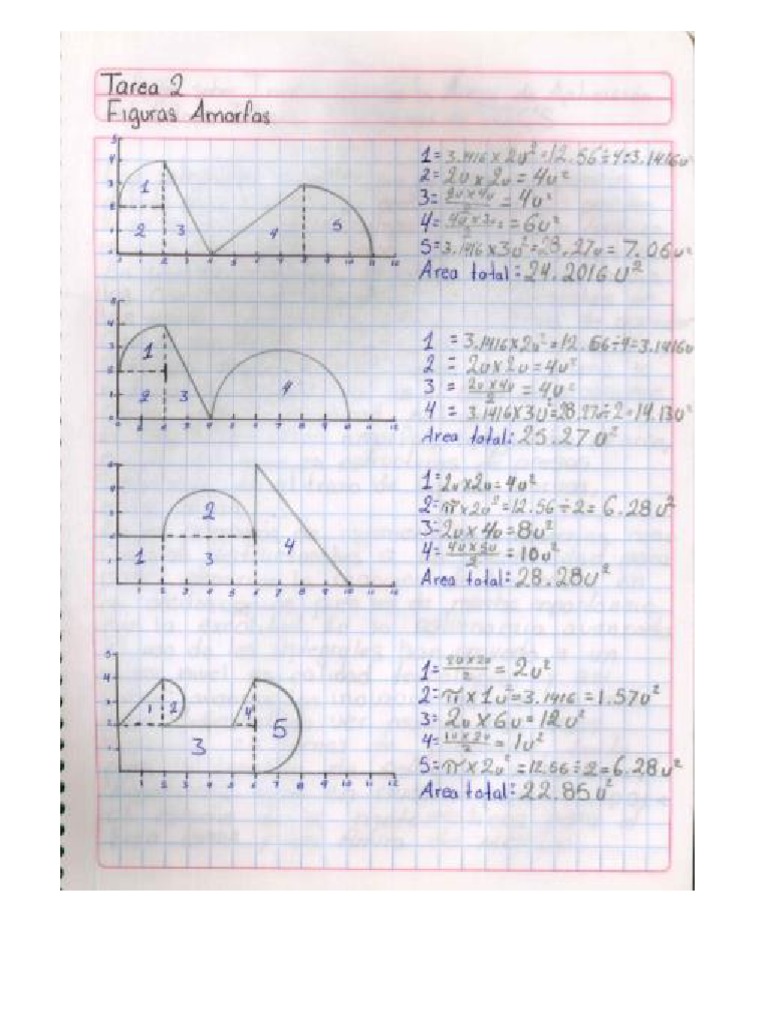 Tarea 2
Figuras Amorfas
1= 3.1416 x 2u² = 12.56 ÷ 4 = 3.1416u
2= 2u x 2u = 4u²
3= 2u x 4u / 2 = 4u²
4= 4u x 3u / 2 = 6u²
5= 3.1416 x 3u² = 28.27u = 7.06u²
Area total: 24.2016 U²
1 = 3.1416 x 2u² = 12.56 ÷ 4 = 3.1416u
2 = 2u x 2u = 4u²
3 = 2u x 4u / 2 = 4u²
4 = 3.1416 x 3u² = 28.27 ÷ 2 = 14.13u²
Area total: 25.27u²
1= 2u x 2u = 4u²
2= π x 2u² = 12.56 ÷ 2 = 6.28u²
3= 2u x 4u = 8u²
4= 4u x 5u / 2 = 10u²
Area total: 28.28u²
1= 2u x 2u / 2 = 2u²
2= π x 1u² = 3.1416 = 1.57u²
3= 2u x 6u = 12u²
4= 1u x 2u / 2 = 1u²
5= π x 2u² = 12.56 ÷ 2 = 6.28u²
Area total: 22.85u²